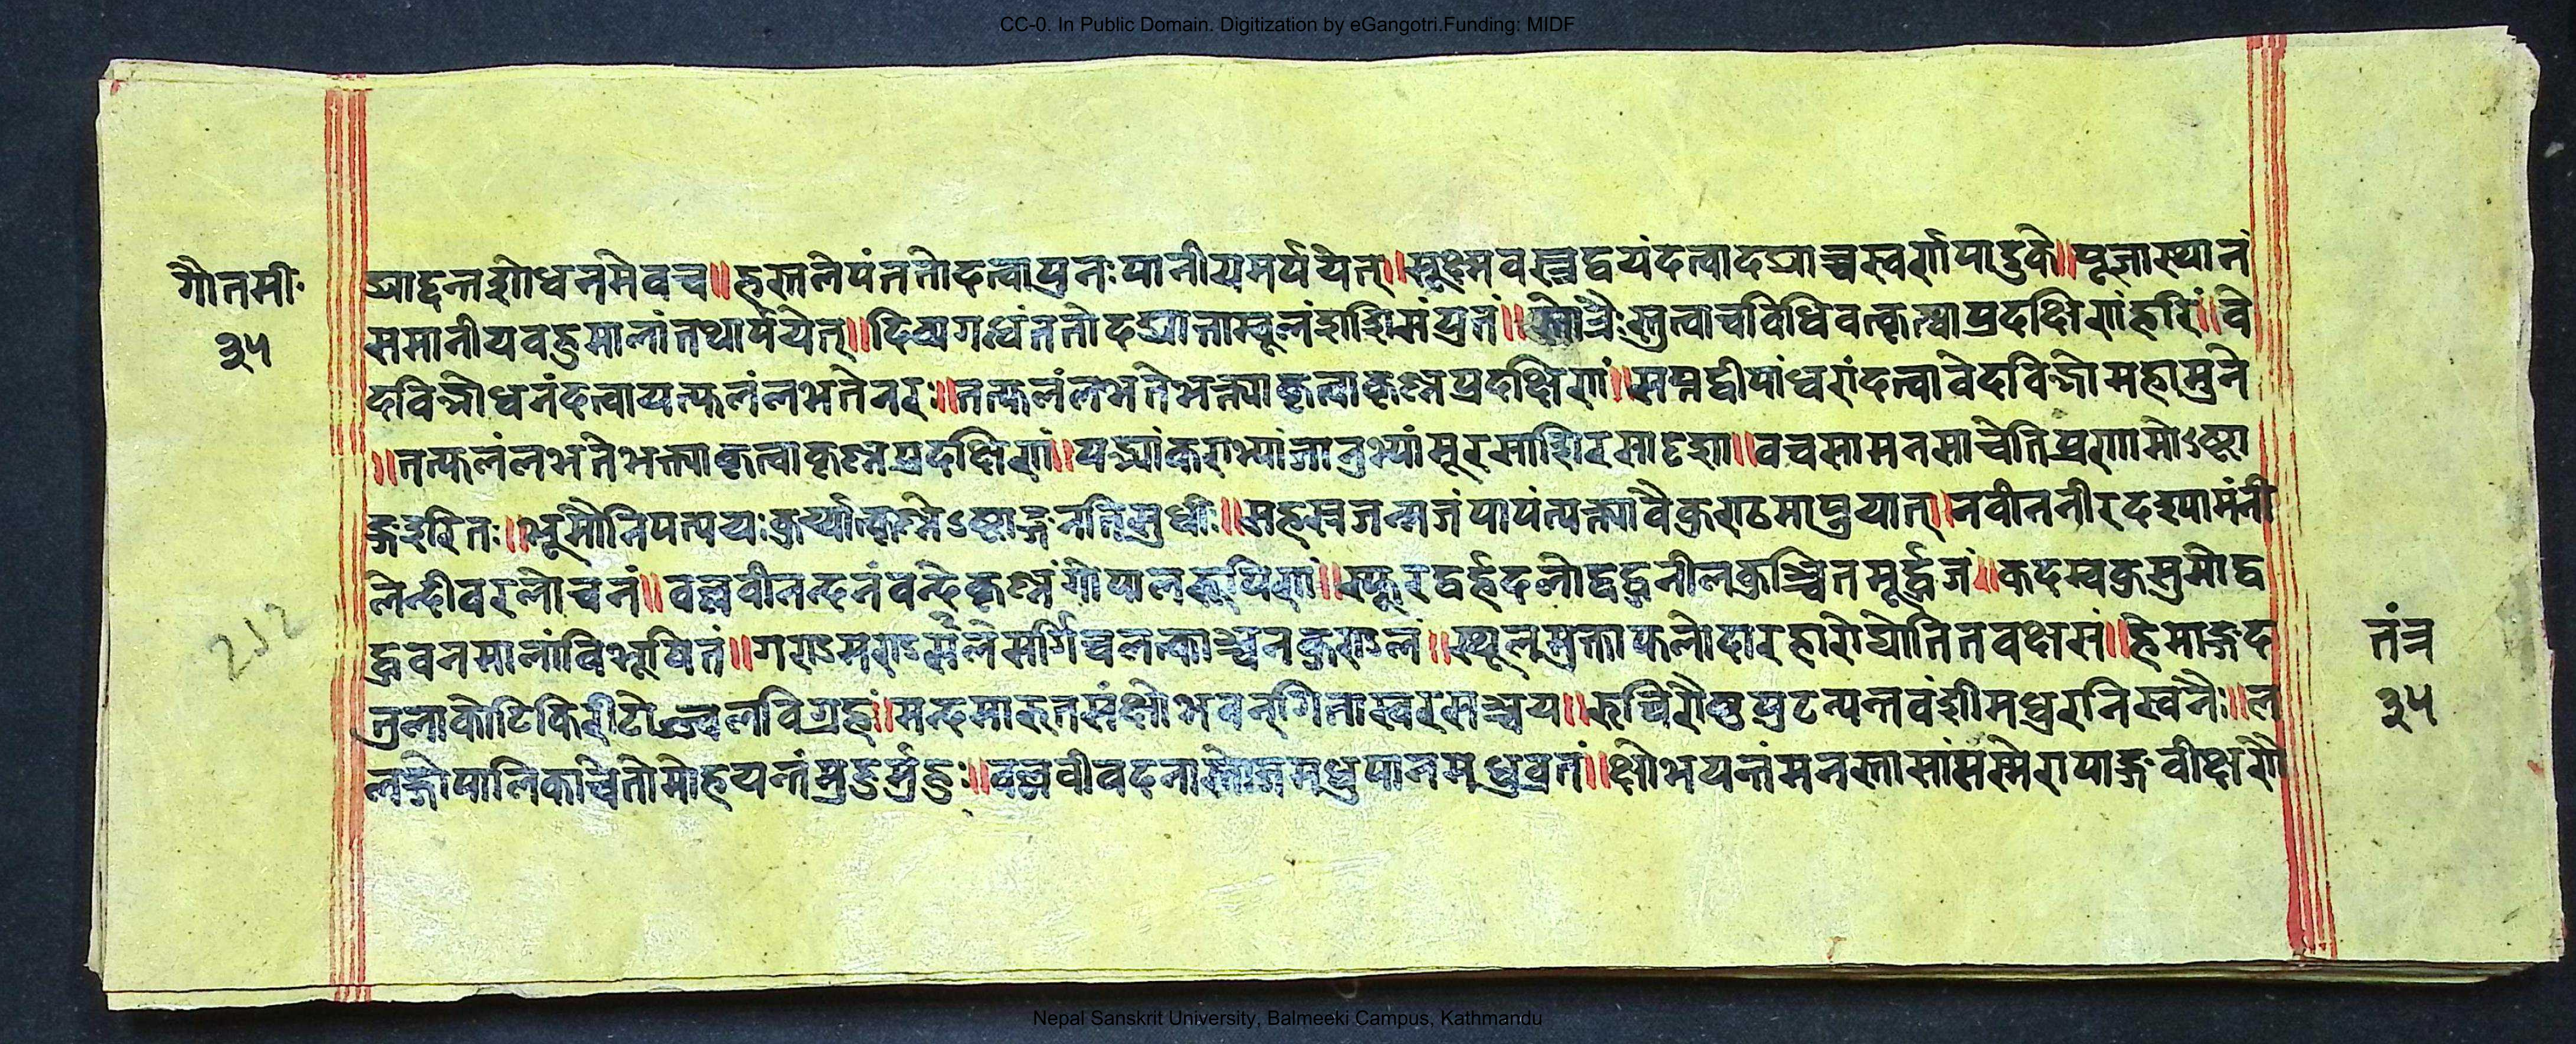 CC-0. In Public Domain. Digitization by eGangotri.Funding: MIDF
गौतमीः
३५
द्याद्दन्तशोधनमेवच॥हस्तलेपंततोदत्वापुनःपानीयमर्पयेत्॥सूक्ष्मवस्त्रद्वयंदत्वादद्याच्चस्वर्णपादुके॥पूजास्थानं
समानीयवहुमालांतथार्पयेत्॥दिव्यगन्धंततोदद्यात्ताम्बूलं॥स्तोत्रैःस्तुत्वाचविधिवत्कृत्वाप्रदक्षिणांहरिं॥वे
दविज्ञोधनंदत्वायत्फलंलभतेनरः॥तत्फलंलभतेभक्त्याकृत्वाकृष्णप्रदक्षिणां॥सप्तद्वीपांधरांदत्वावेदविज्ञोमहामुने
॥तत्फलंलभतेभक्त्याकृत्वाकृष्णप्रदक्षिणां॥पद्भ्यांकराभ्यांजानुभ्यांमूरसाशिरसादृशा॥वचसामनसाचेतिप्रणामोऽष्टा
ङ्गइरितः॥भूमौनिपत्ययःकुर्य्यात्कृष्णेऽष्टाङ्गनतिसुधीः॥सहस्रजन्मजंपापंत्यक्त्वावैकुण्ठमाप्नुयात्॥नवीननीरदश्यामंनी
लेन्दीवरलोचनं॥वल्लवीनन्दनंवन्देकृष्णंगोपालरूपिणं॥स्फुरद्वर्हदलोद्वद्धनीलकुञ्चितमूर्द्धजं॥कदम्बकुसुमोद्व
द्धवनमालांविभूषितं॥गण्डमण्डलसंसर्गिचलत्काञ्चनकुण्डलं॥स्थूलमुक्ताफलोदारहारोद्योतितवक्षसं॥हेमाङ्गद
तुलाकोटिकिरीटोज्ज्वलविग्रहं॥मन्दमारुतसंक्षोभ॥रुचिरौष्ठपुटन्यस्तवंशीमधुरनिस्वनैः॥ल
लद्गोपालिकाचेतोमोहयन्तंमुहुर्मुहुः॥वल्लवीवदनाम्भोजमधुपानमधुव्रतं॥क्षोभयन्तंमनस्तासांसस्मेरापाङ्गवीक्षणै
212
तंत्र
३५
Nepal Sanskrit University, Balmeeki Campus, Kathmandu